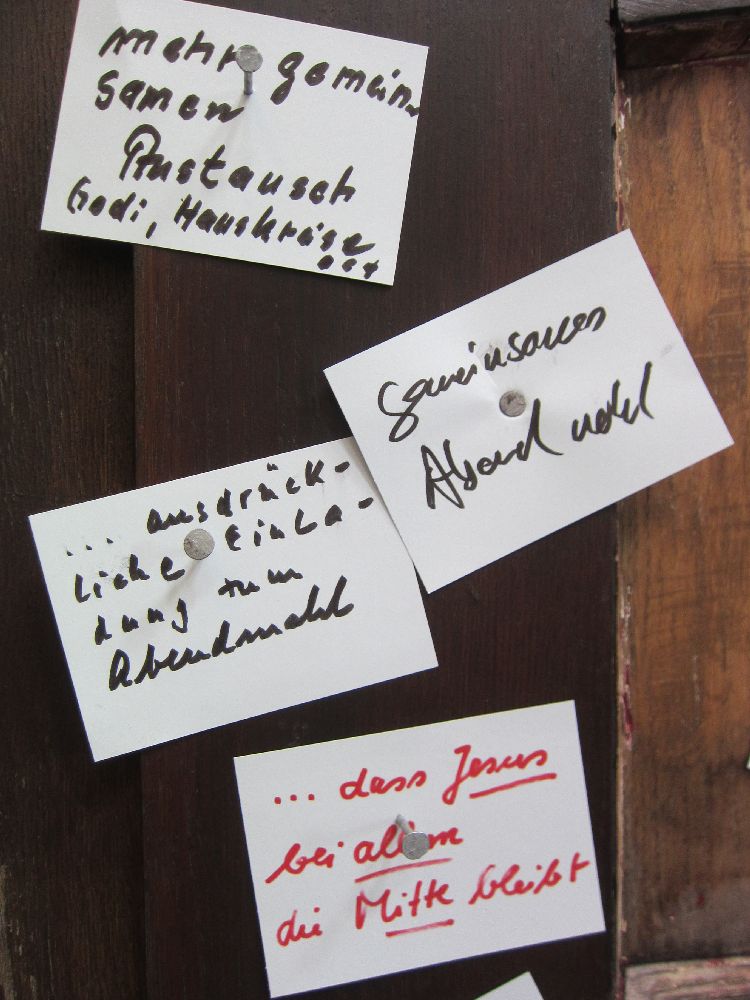 mehr gemein-
samen
Austausch
Godi, Hauskreise
...
Gemeinsames
Abendmahl
... ausdrück-
liche Einla-
dung zum
Abendmahl
... dass Jesus
bei allem
die Mitte bleibt